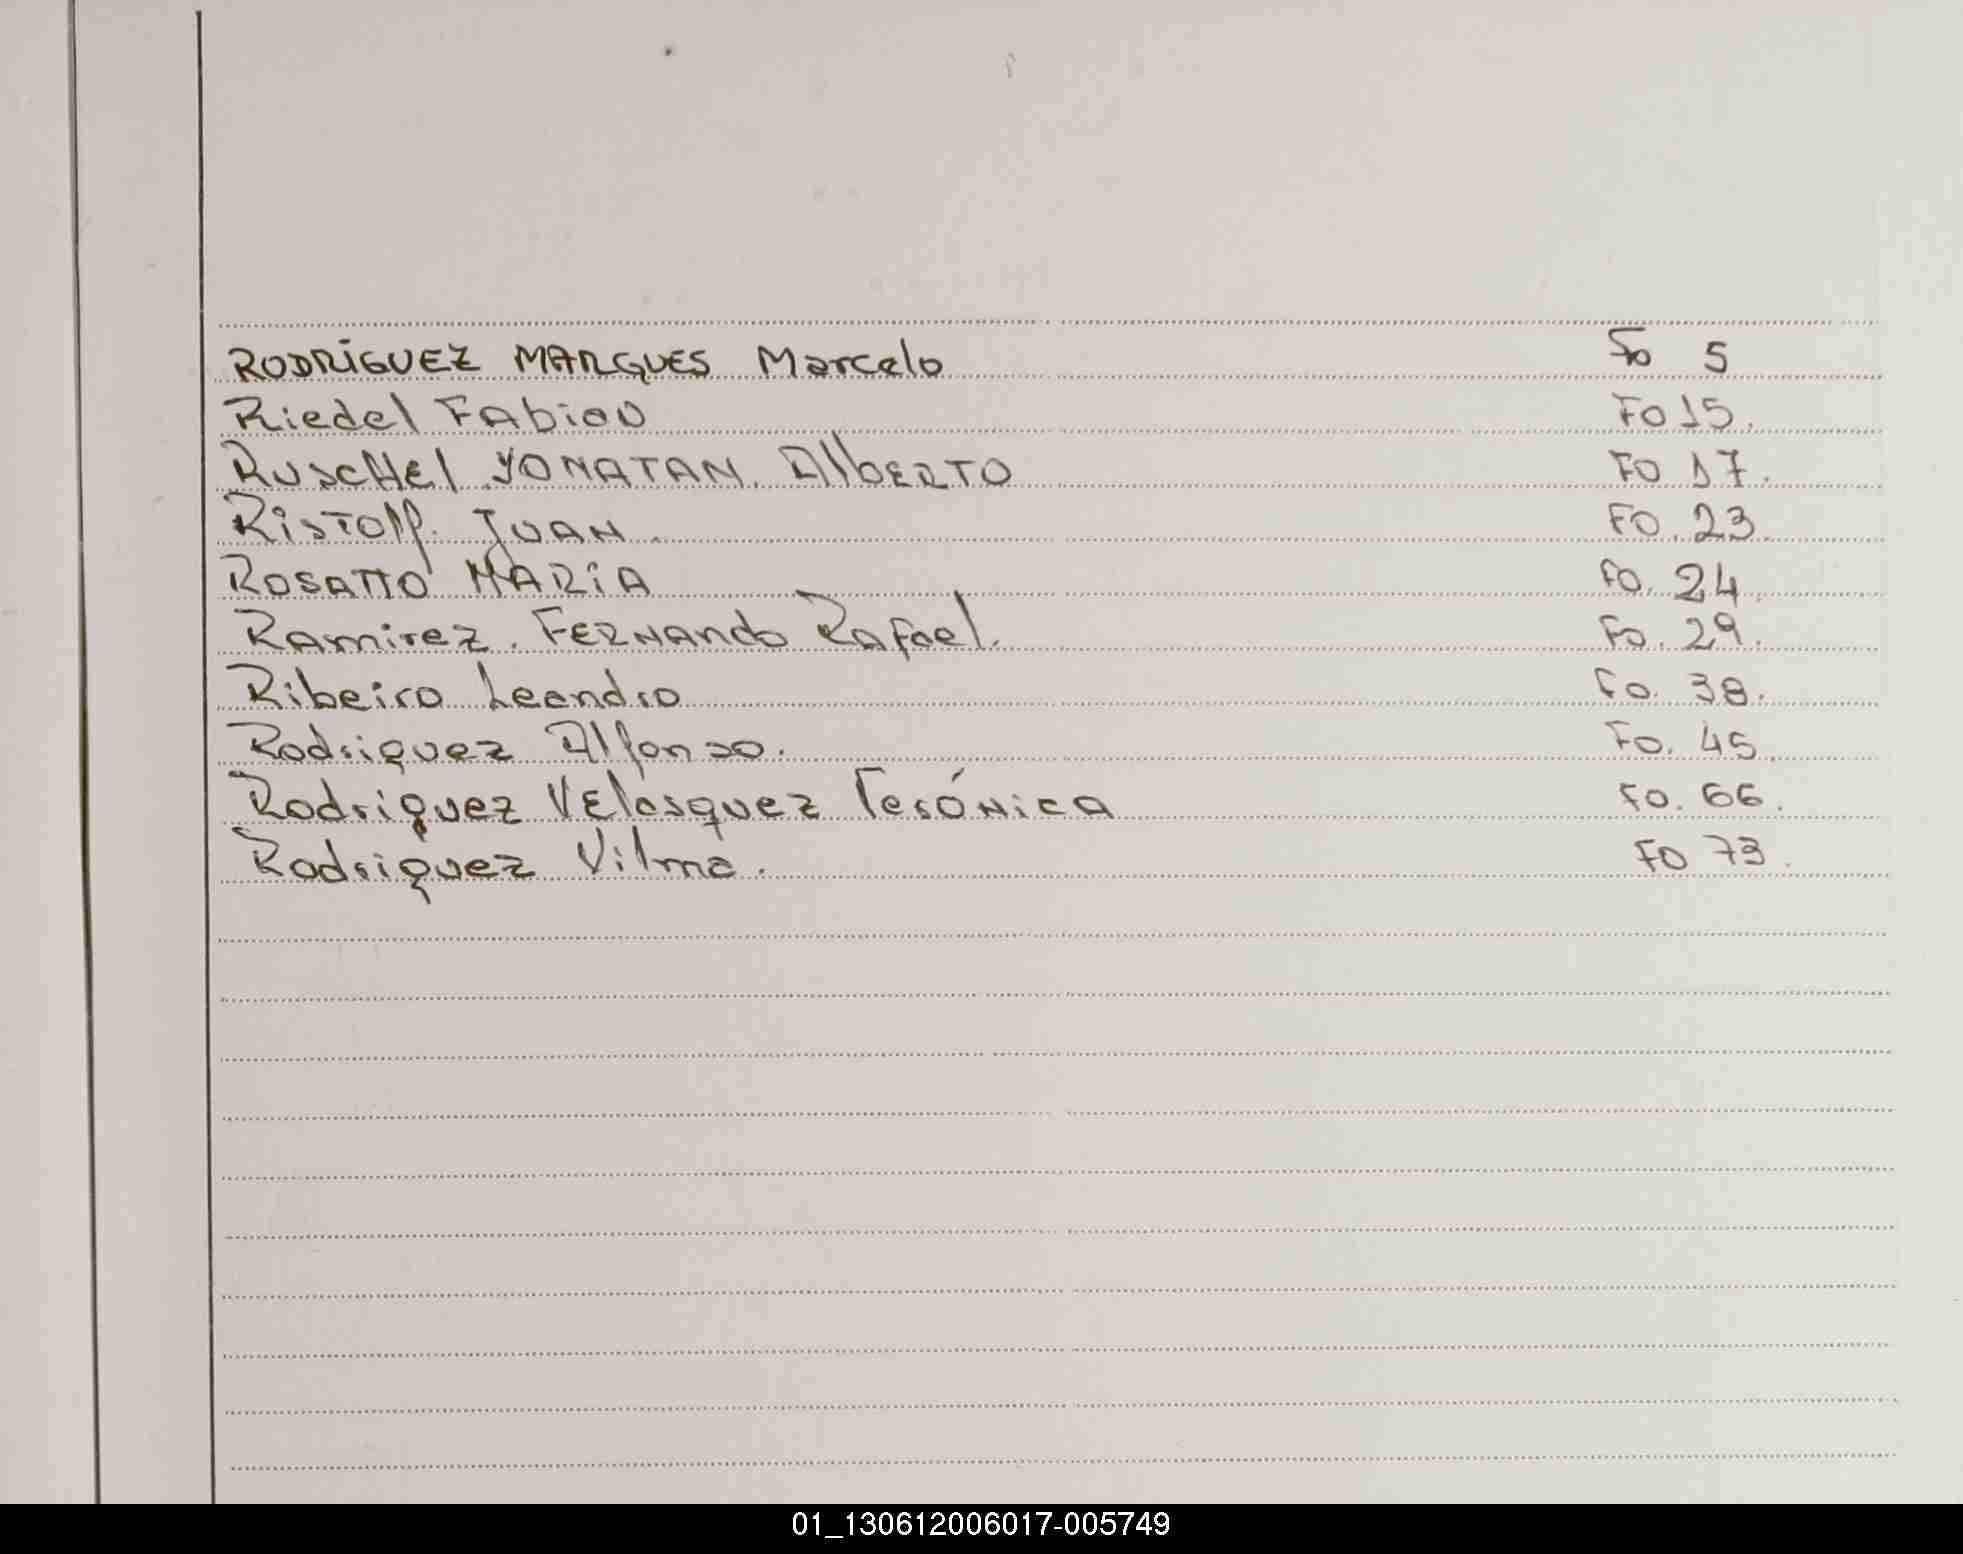 RODRÍGUEZ MARQUES Marcelo Fo 5
Riedel FAbian Fo 15.
RuscHel YONATAN. AlbERTO Fo 17.
RisTOff. JUAN. FO. 23.
ROSATTO MARiA Fo. 24.
RAmirez. FERNAndo RAfael. Fo. 29.
Ribeiro Leandro Fo. 38.
Rodriguez Alfonso. Fo. 45
Rodriguez VElasquez Fo. 66.
Rodriguez Vilma. Fo 73.
01_130612006017-005749